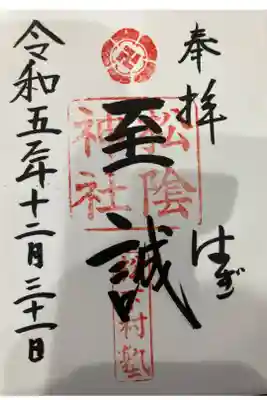 奉拝 はぎ
松陰
神社
至誠
村塾
令和五年十二月三十一日